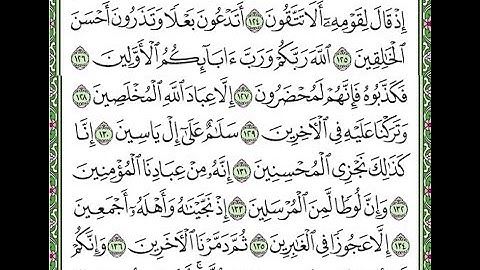 إِذْ قَالَ لِقَوْمِهِۦٓ أَلَا تَتَّقُونَ ١٢٤ أَتَدْعُونَ بَعْلًا وَتَذَرُونَ أَحْسَنَ
ٱلْخَٰلِقِينَ ١٢٥ ٱللَّهَ رَبَّكُمْ وَرَبَّ ءَابَآئِكُمُ ٱلْأَوَّلِينَ ١٢٦
فَكَذَّبُوهُ فَإِنَّهُمْ لَمُحْضَرُونَ ١٢٧ إِلَّا عِبَادَ ٱللَّهِ ٱلْمُخْلَصِينَ ١٢٨
وَتَرَكْنَا عَلَيْهِ فِى ٱلْءَاخِرِينَ ١٢٩ سَلَٰمٌ عَلَىٰٓ إِلْ يَاسِينَ ١٣٠ إِنَّا
كَذَٰلِكَ نَجْزِى ٱلْمُحْسِنِينَ ١٣١ إِنَّهُۥ مِنْ عِبَادِنَا ٱلْمُؤْمِنِينَ
١٣٢ وَإِنَّ لُوطًا لَّمِنَ ٱلْمُرْسَلِينَ ١٣٣ إِذْ نَجَّيْنَٰهُ وَأَهْلَهُۥٓ أَجْمَعِينَ
١٣٤ إِلَّا عَجُوزًا فِى ٱلْغَٰبِرِينَ ١٣٥ ثُمَّ دَمَّرْنَا ٱلْءَاخَرِينَ ١٣٦ وَإِنَّكُمْ